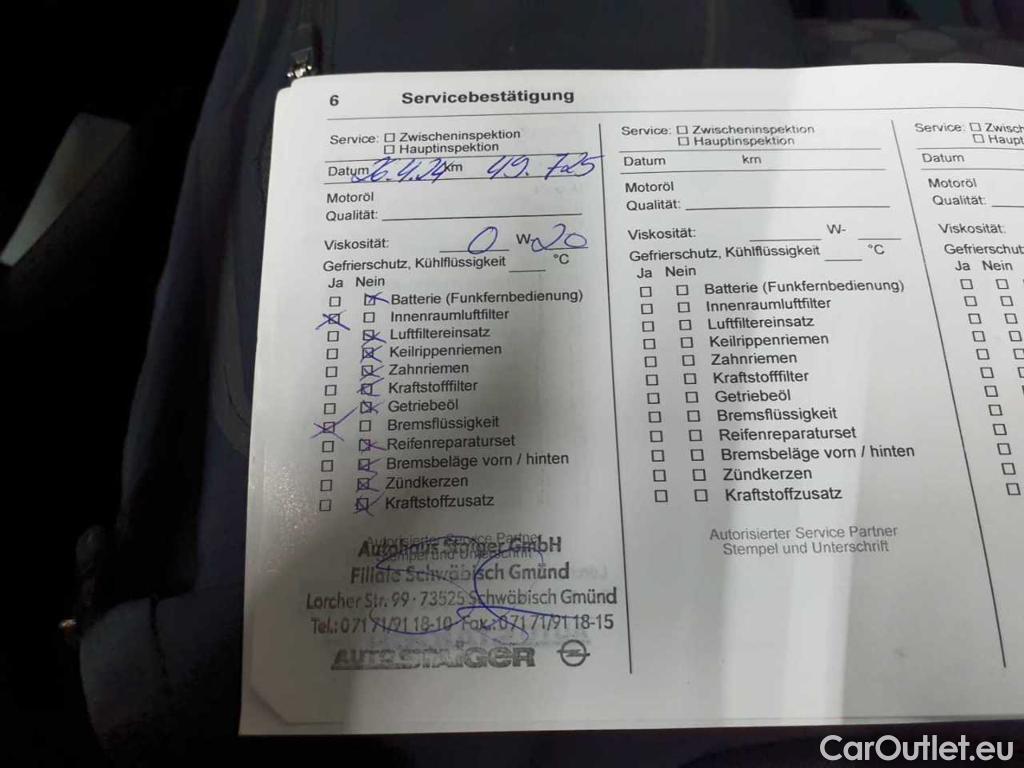 6 Servicebestätigung
Service: Zwischeninspektion
Hauptinspektion
Datum 26.4.24 km 49.725
Motoröl
Qualität:
Viskosität: 0 W- 20
Gefrierschutz, Kühlflüssigkeit °C
Ja Nein
Batterie (Funkfernbedienung)
Innenraumluftfilter
Luftfiltereinsatz
Keilrippenriemen
Zahnriemen
Kraftstofffilter
Getriebeöl
Bremsflüssigkeit
Reifenreparaturset
Bremsbeläge vorn / hinten
Zündkerzen
Kraftstoffzusatz
Autorisierter Service Partner
Stempel und Unterschrift
Autohaus Staiger GmbH
Filiale Schwäbisch Gmünd
Lorcher Str. 99 · 73525 Schwäbisch Gmünd
Tel.: 0 71 71/91 18-10 Fax.: 0 71 71/91 18-15
AUTO STAIGER
Service: Zwischeninspektion
Hauptinspektion
Datum km
Motoröl
Qualität:
Viskosität: W-
Gefrierschutz, Kühlflüssigkeit °C
Ja Nein
Batterie (Funkfernbedienung)
Innenraumluftfilter
Luftfiltereinsatz
Keilrippenriemen
Zahnriemen
Kraftstofffilter
Getriebeöl
Bremsflüssigkeit
Reifenreparaturset
Bremsbeläge vorn / hinten
Zündkerzen
Kraftstoffzusatz
Autorisierter Service Partner
Stempel und Unterschrift
Service: Zwisch
Haupt
Datum
Motoröl
Qualität:
Viskosität:
Gefrierschutz
Ja Nein
CarOutlet.eu